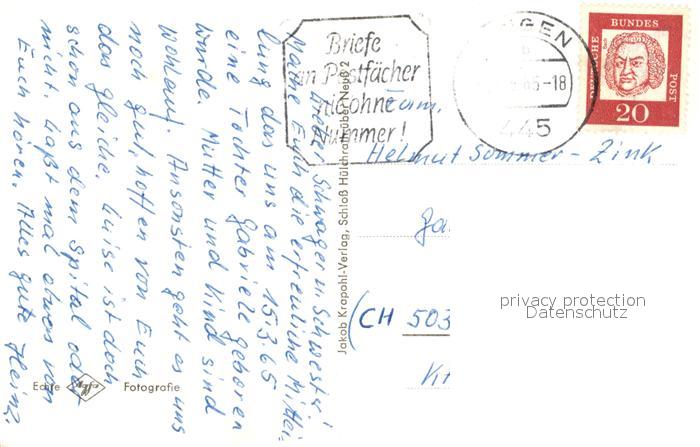 Liebe Schwager u. Schwester!
Mache Euch die erfreuliche Mittei-
lung das uns am 15.3.65
eine Tochter Gabriele geboren
wurde. Mutter und Kind sind
wohlauf. Ansonsten geht es uns
noch gut, hoffen von Euch
das gleiche. Luise ist doch
schon aus dem Spital oder
nicht. Laßt mal etwas von
Euch hören. Alles gute Heinz.
Echte Agfa Fotografie
Jakob Krapohl-Verlag, Schloß Hülchrath über Neuß 2
Briefe
an Postfächer
nie ohne
Nummer!
GEN
b
65-18
445
DEUTSCHE BUNDES POST
20
Fam.
Helmut Sommer-Zink
(CH 503
privacy protection
Datenschutz